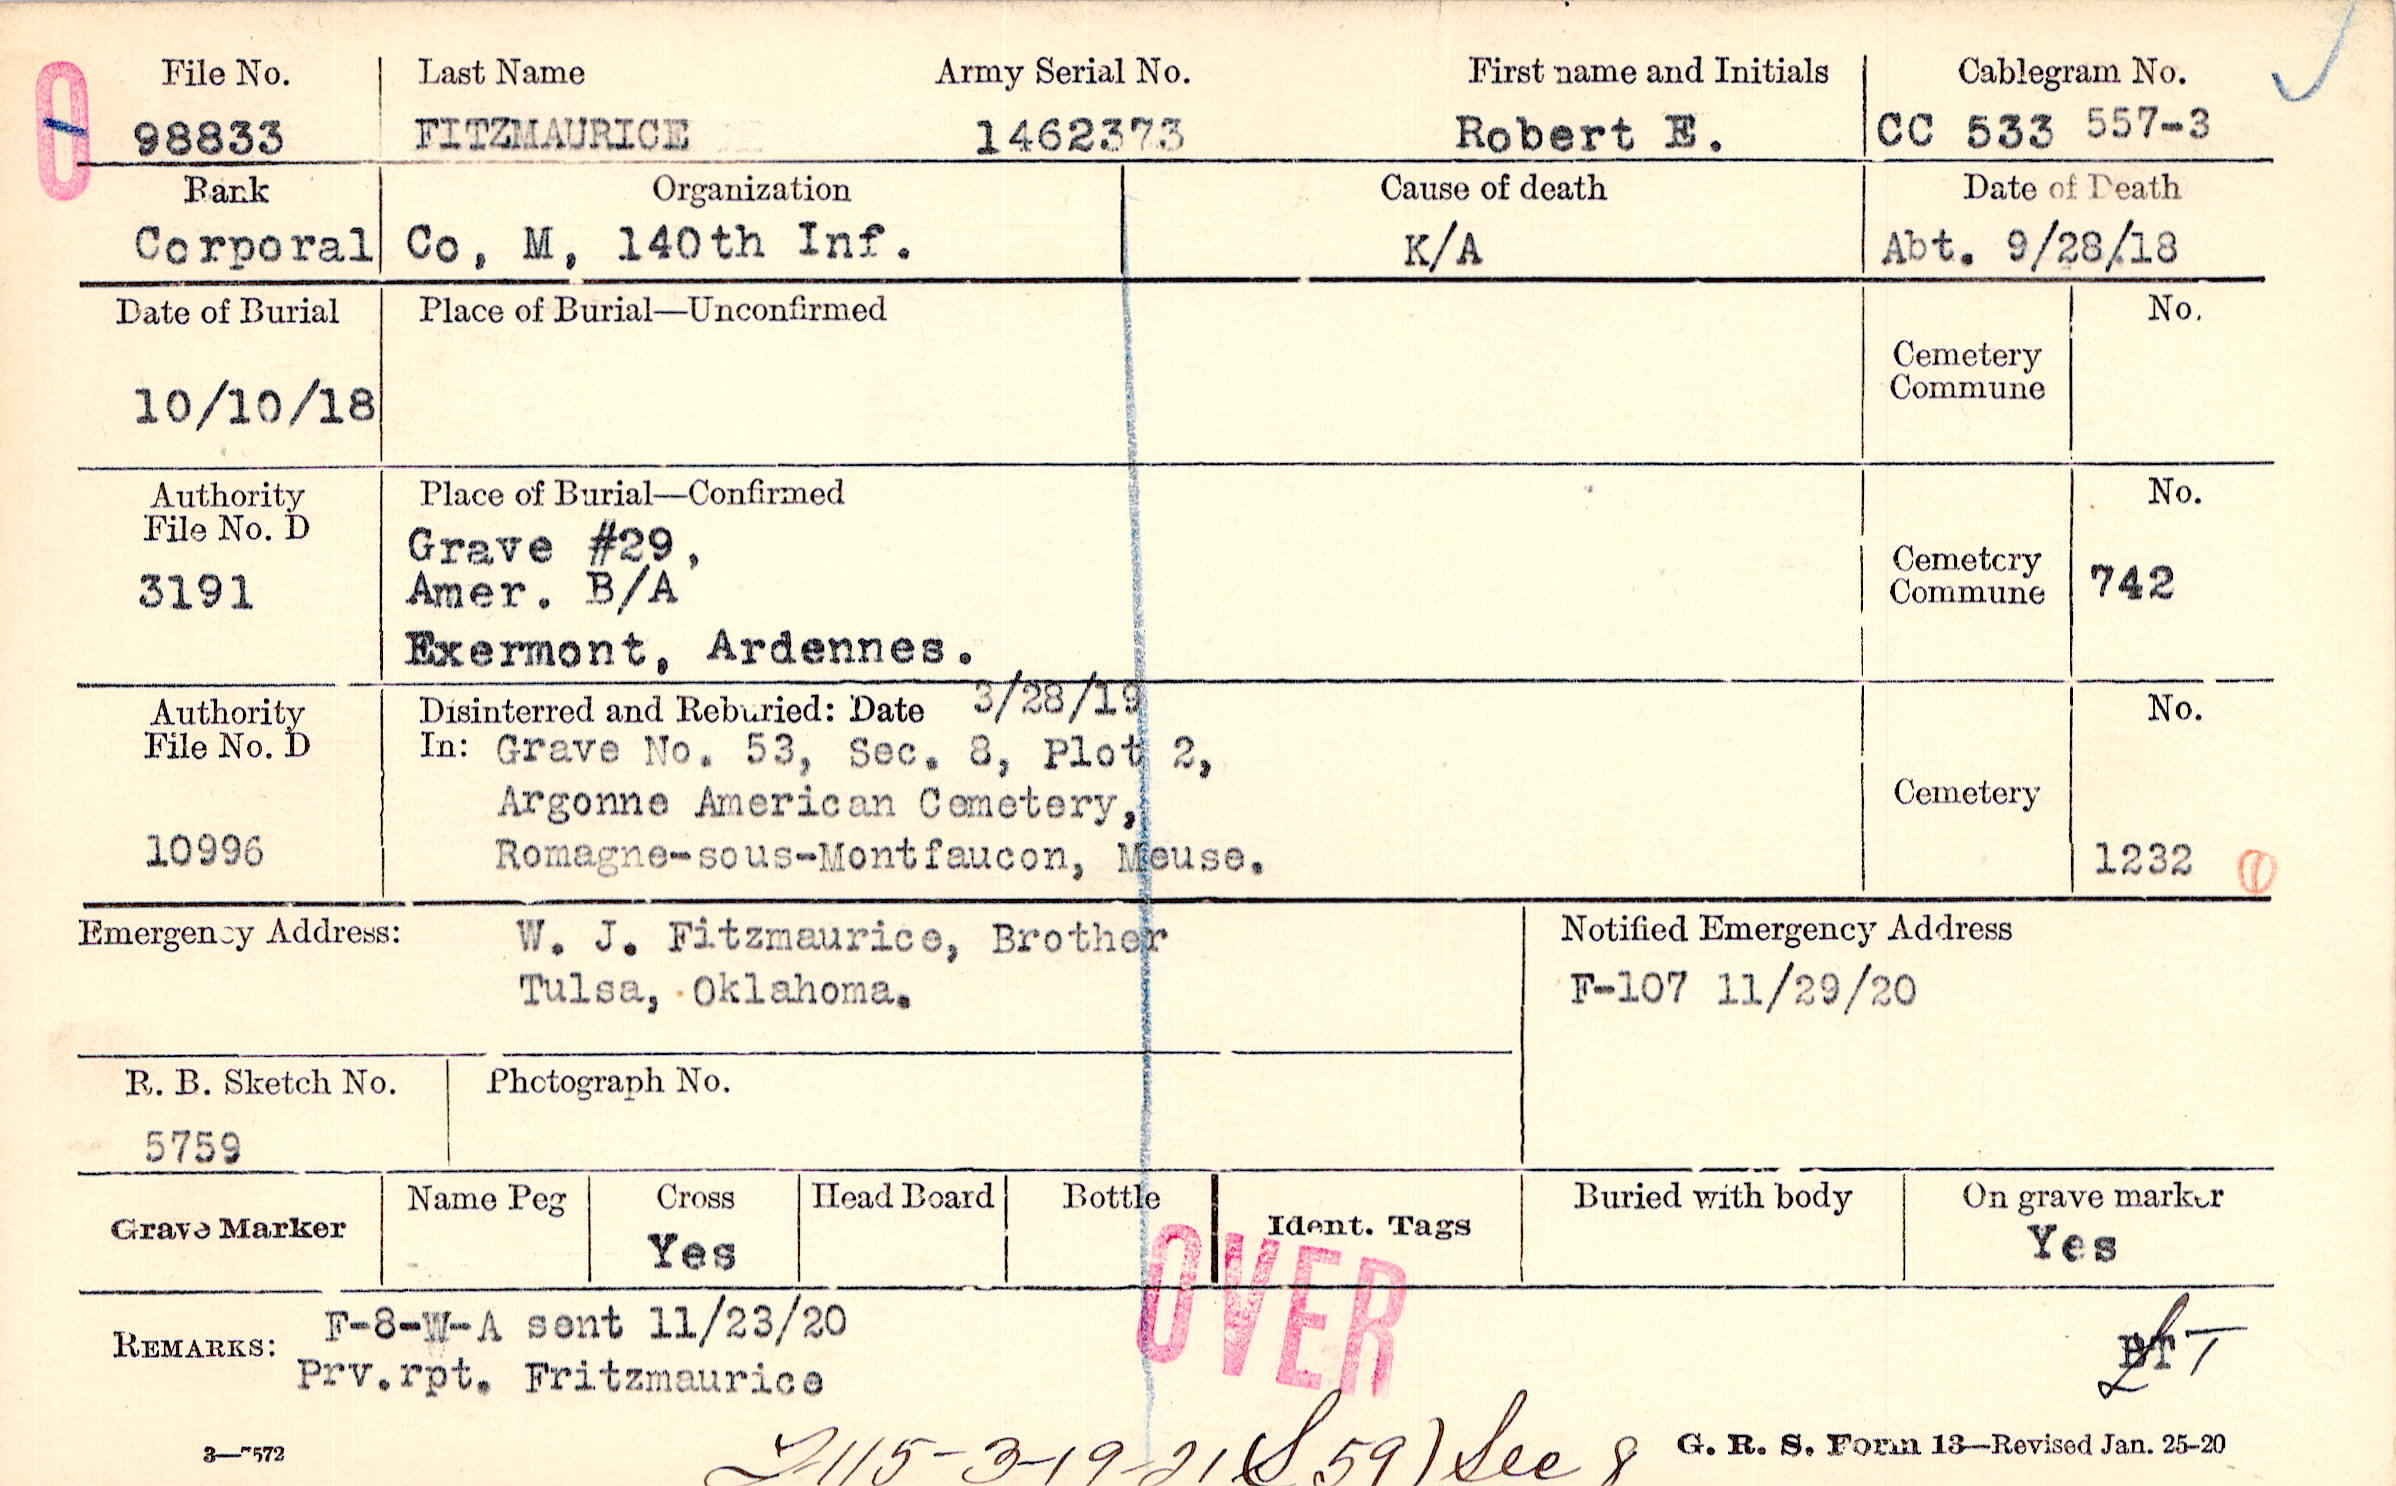 File No. Last Name Army Serial No. First name and Initials Cablegram No.
98833 FITZMAURICE 1462373 Robert E. CC 533 557-3
Rank Organization Cause of death Date of Death
Corporal Co, M, 140th Inf. K/A Abt. 9/28/18
Date of Burial Place of Burial—Unconfirmed No.
Cemetery
Commune
10/10/18
Authority Place of Burial—Confirmed No.
File No. D
Grave #29,
3191 Amer. B/A Cemetery
Commune 742
Exermont, Ardennes.
Authority Disinterred and Reburied: Date 3/28/19 No.
File No. D In: Grave No. 53, Sec. 8, Plot 2,
Argonne American Cemetery, Cemetery
10996 Romagne-sous-Montfaucon, Meuse. 1232
Emergency Address: W. J. Fitzmaurice, Brother Notified Emergency Address
Tulsa, Oklahoma. F-107 11/29/20
R. B. Sketch No. Photograph No.
5759
Grave Marker Name Peg Cross Head Board Bottle Ident. Tags Buried with body On grave marker
Yes Yes
OVER
REMARKS: F-8-W-A sent 11/23/20
Prv.rpt. Fritzmaurice
3—7572 115-3-19-21 (S 59) See 8 G. R. S. Form 13—Revised Jan. 25-20